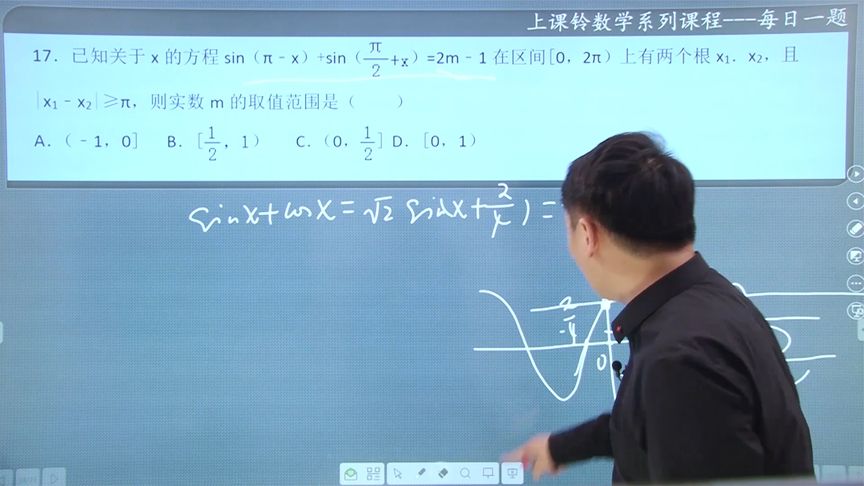 上课铃数学系列课程---每日一题
17. 已知关于 x 的方程 sin（π﹣x）+sin（π/2+x）=2m﹣1 在区间[0，2π）上有两个根 x₁．x₂，且
|x₁﹣x₂|≥π，则实数 m 的取值范围是（　　）
A.（﹣1，0] B. [1/2，1） C.（0，1/2] D. [0，1）
sinx+cosx=√2 sin(x+π/4)=
-π/4
0